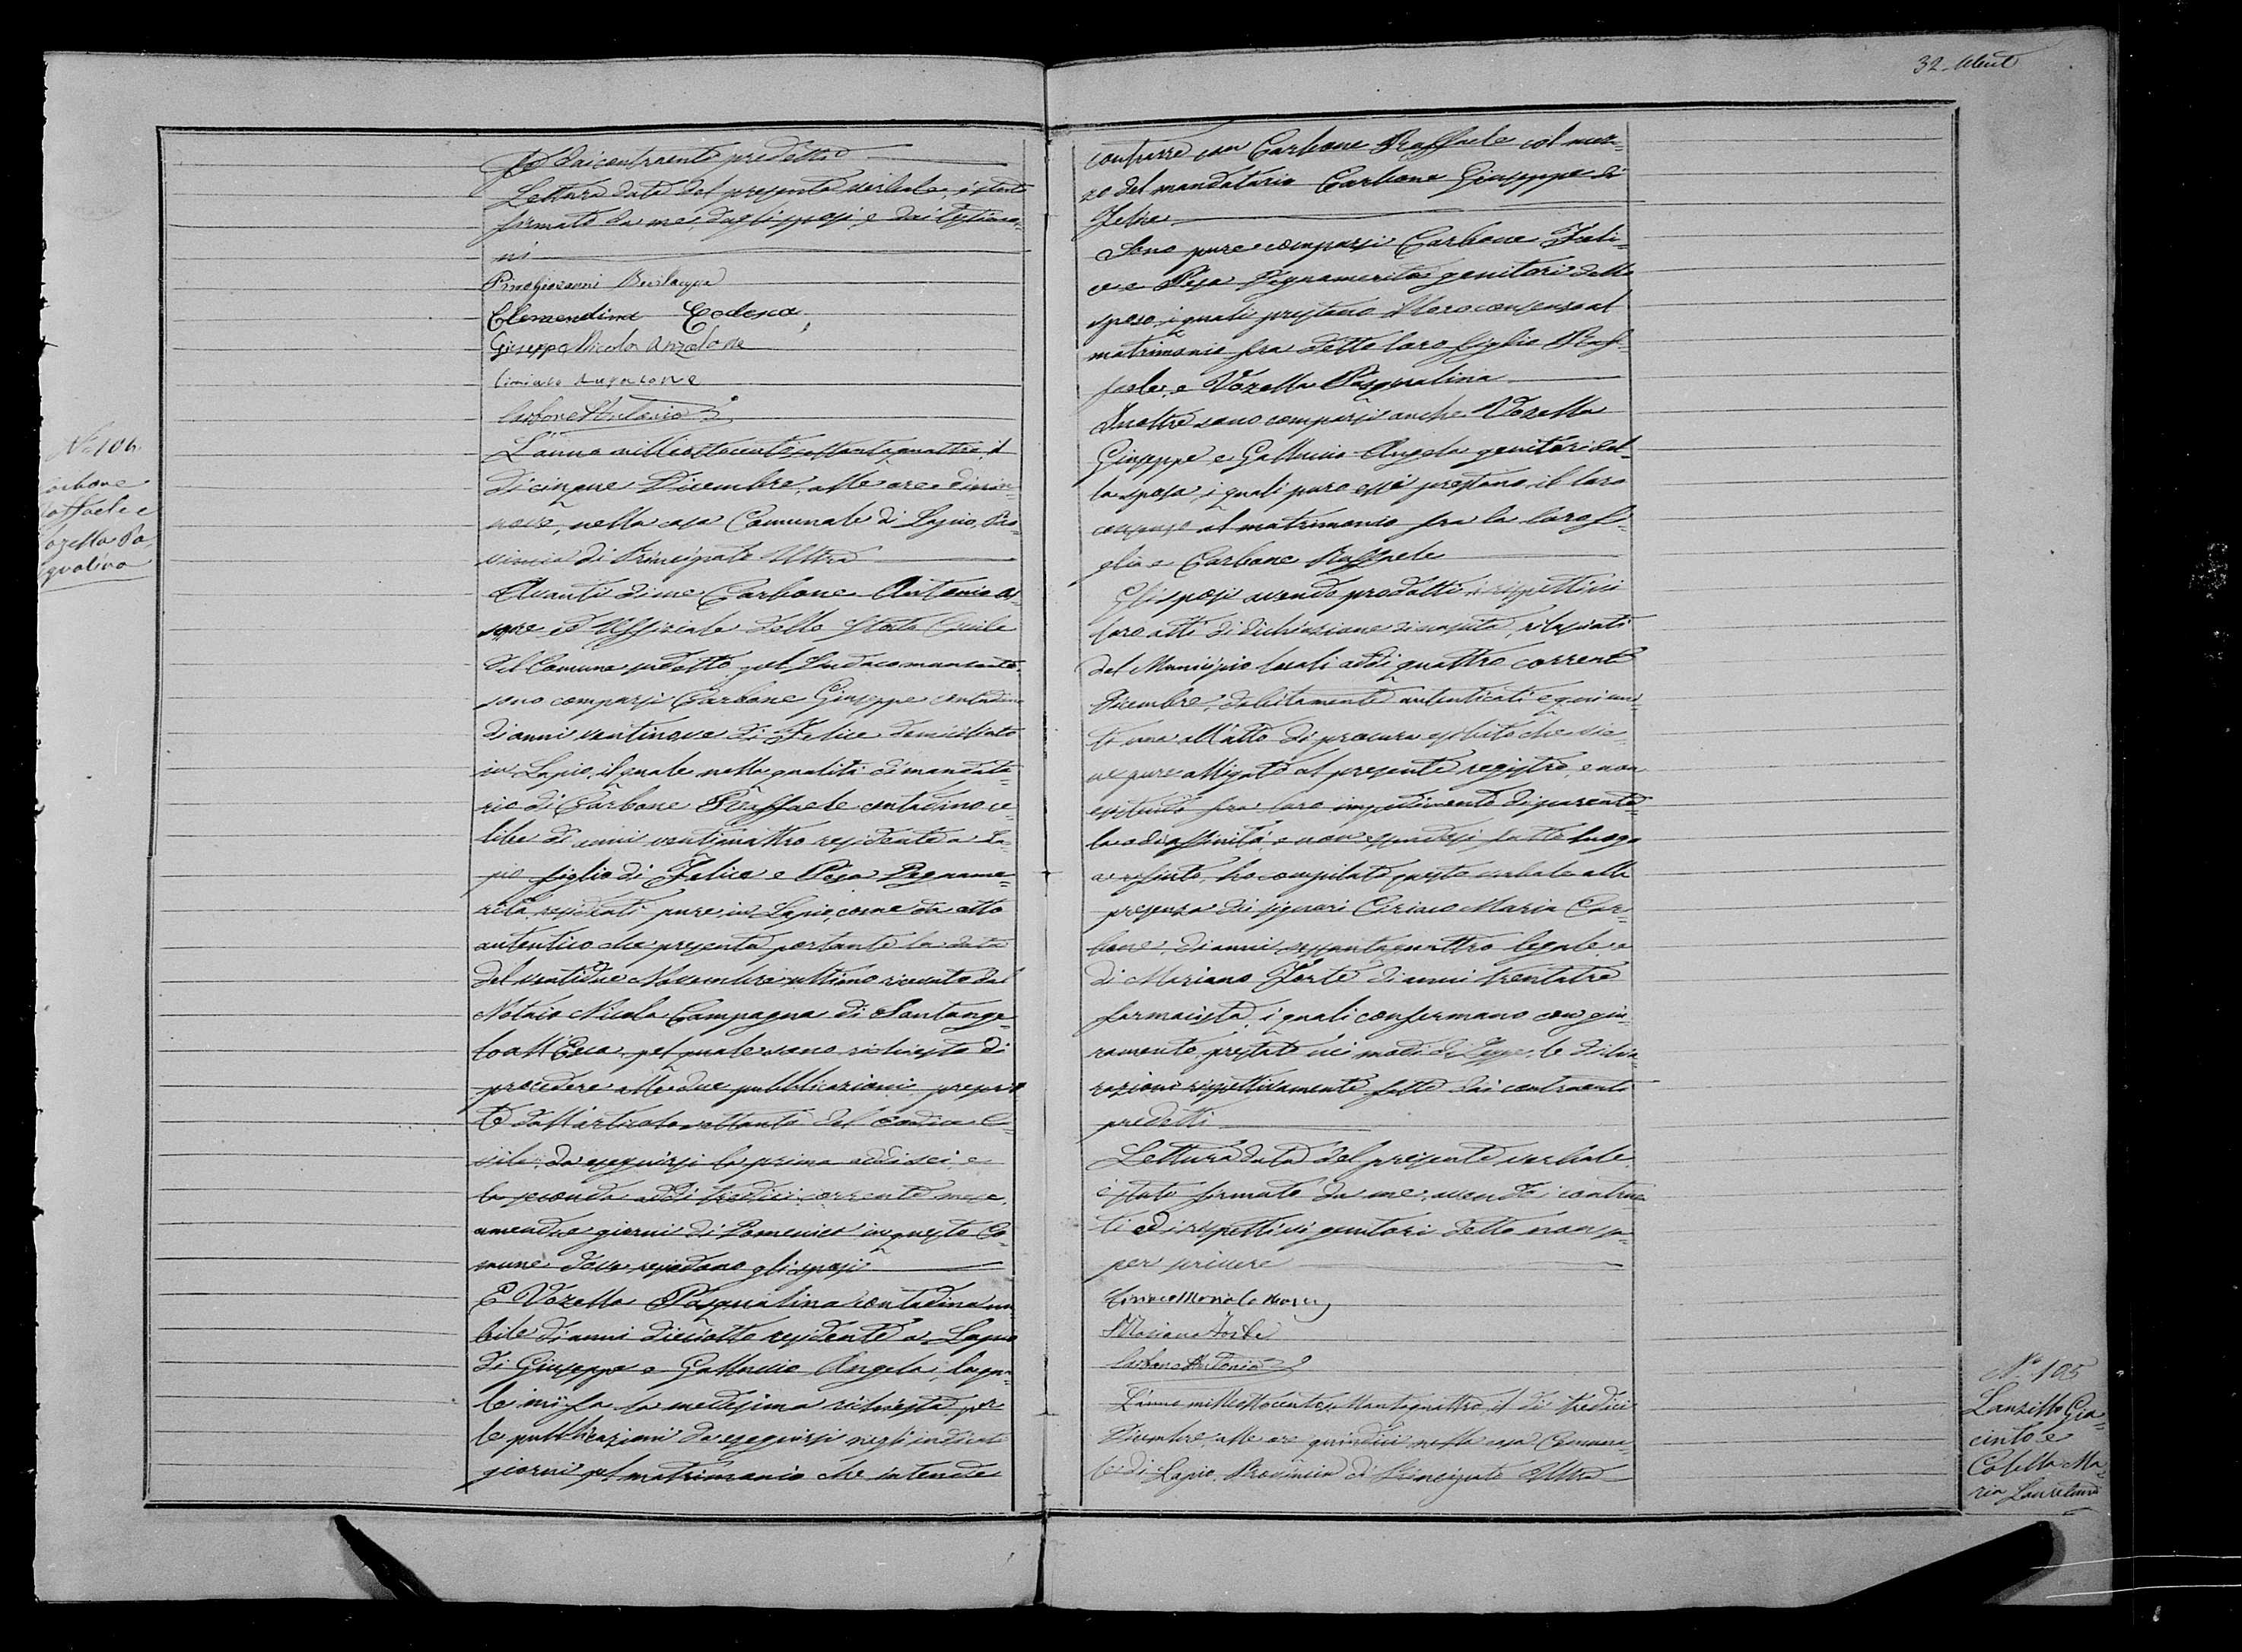 32
fo dai contraenti predetti
Lettura data del presente verbale, è stato
firmato da me, dagli sposi, e dai testimo-
ni
Clementina Codesca
Giuseppe Nicola Anzalone
Carbone Antonio
N. 106
Carbone
Raffaele e
Vozella Pa-
squalina
L'anno milleottocentosettantaquattro, il
di cinque Dicembre, alle ore dician-
nove, nella casa Comunale di Lapio, Pro-
vincia di Principato Ultra
Avanti di me Carbone Antonio As-
sore ed Uffiziale dello Stato Civile
del Comune suddetto pel Sindaco mancante
sono comparsi Carbone Giuseppe contadino
di anni ventinove di Felice domiciliato
in Lapio, il quale nella qualità di mandata-
rio di Carbone Raffaele contadino ce-
libe di anni ventiquattro residente a La-
pio figlio di Felice e Pisa Pegname-
rita residenti pure in Lapio, come da atto
autentico che presenta portante la data
del ventidue Novembre ultimo ricevuto dal
Notaio Nicola Campagna di Santange-
lo all'Esca, pel quale sono richiesto di
procedere alle due pubblicazioni prescrit-
te dall'articolo settanta del Codice Ci-
vile, da eseguirsi la prima addi sei, e
la seconda addi tredici corrente mese,
amendue giorni di Domenica in questo Co-
mune dove risiedono gli sposi
E Vozella Pasqualina contadina nu-
bile di anni dieciotto residente a Lapio
di Giuseppe e Galluccio Angela, la qua-
le mi fa la medesima richiesta per
le pubblicazioni da eseguirsi negli indicati
giorni pel matrimonio che intende
contrarre con Carbone Raffaele col mez-
zo del mandatario Carbone Giuseppe di
Felice
Sono pure comparsi Carbone Feli-
ce e Pisa Pegnamerita genitori dello
sposo, i quali prestano il loro consenso al
matrimonio fra detto loro figlio Raf-
faele, e Vozella Pasqualina
Inoltre sono comparsi anche Vozella
Giuseppe e Galluccio Angela genitori del-
la sposa, i quali pure essi prestano il loro
consenso al matrimonio fra la loro fi-
glia e Carbone Raffaele
Gli sposi avendo prodotti i rispettivi
loro atti di dichiazione di nascita, rilasciati
dal Municipio locali addi quattro corrente
Dicembre, debitamente autenticati e qui uni-
ti una all'atto di procura esibito che vie-
ne pure alligato al presente registro, e non
esistendo fra loro impedimento di parente-
la o di affinità e non essendosi fatto luogo
a rifiuto, ho compilato questo verbale alla
presenza dei signori Ciriaco Maria Car-
bone, di anni sessantaquattro legale, e
di Mariano Forte di anni trentatre
farmacista, i quali confermano con giu-
ramento prestato nei modi di Legge, le dichia-
razioni rispettivamente fatte dai contraenti
predetti
Lettura data del presente verbale,
è stato firmato da me, avendo i contraen-
ti ed i rispettivi genitori detto non sa-
per scrivere
Ciriaco Maria Carbone
Mariano Forte
Carbone Antonio
L'anno milleottocentosettantaquattro, il di tredici
Dicembre, alle ore quindici nella casa Comuna-
le di Lapio, Provincia di Principato Ultra
N. 105
Lanzillo Gia-
cinto e
Colella Ma-
ria Lauretana